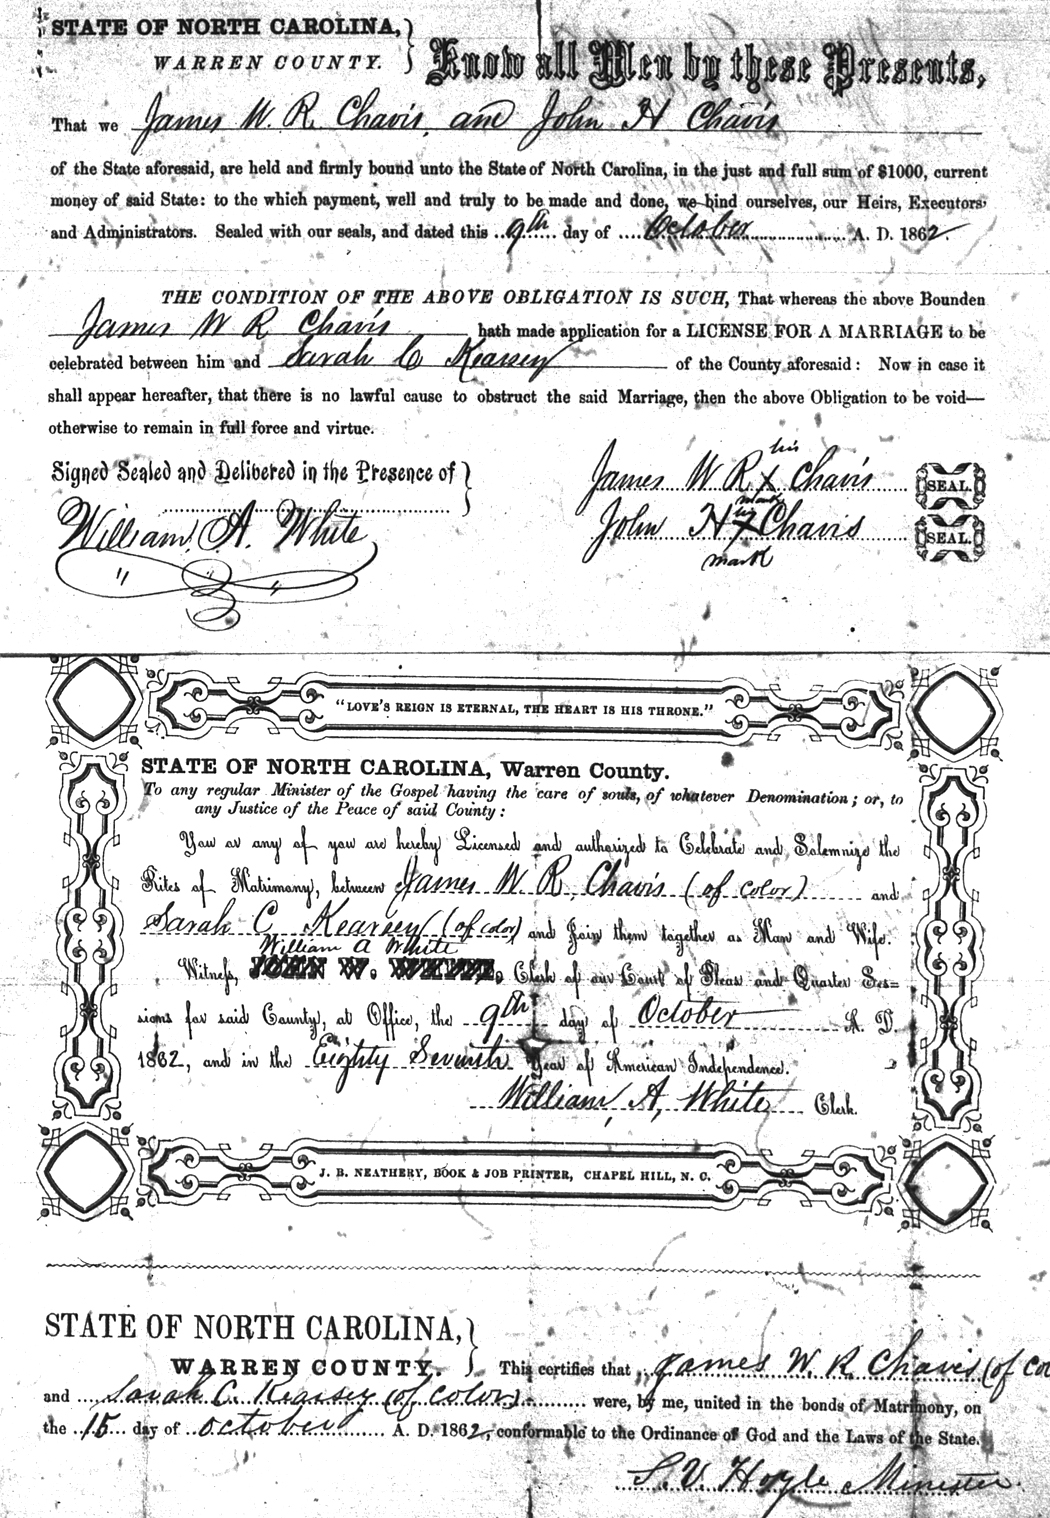 STATE OF NORTH CAROLINA,
WARREN COUNTY.
Know all Men by these Presents,
That we James W. R. Chavis, and John H Chavis
of the State aforesaid, are held and firmly bound unto the State of North Carolina, in the just and full sum of $1000, current
money of said State: to the which payment, well and truly to be made and done, we bind ourselves, our Heirs, Executors
and Administrators. Sealed with our seals, and dated this 9th day of October A. D. 1862.
THE CONDITION OF THE ABOVE OBLIGATION IS SUCH, That whereas the above Bounden
James W R Chavis hath made application for a LICENSE FOR A MARRIAGE to be
celebrated between him and Sarah C Kearsey of the County aforesaid: Now in case it
shall appear hereafter, that there is no lawful cause to obstruct the said Marriage, then the above Obligation to be void—
otherwise to remain in full force and virtue.
Signed Sealed and Delivered in the Presence of
William A. White
his
James W R x Chavis SEAL.
mark
his
John H x Chavis SEAL.
mark
"LOVE'S REIGN IS ETERNAL, THE HEART IS HIS THRONE."
STATE OF NORTH CAROLINA, Warren County.
To any regular Minister of the Gospel having the care of souls, of whatever Denomination; or, to
any Justice of the Peace of said County:
You or any of you are hereby Licensed and authorized to Celebrate and Solemnize the
Rites of Matrimony, between James W. R. Chavis (of color) and
Sarah C. Kearsey (of color) and Join them together as Man and Wife.
William A White
Witness, JOHN W. WHITE, Clerk of our Court of Pleas and Quarter Ses=
sions for said County, at Office, the 9th day of October A. D.
1862, and in the Eighty Seventh Year of American Independence.
William, A, White Clerk.
J. B. NEATHERY, BOOK & JOB PRINTER, CHAPEL HILL, N. C.
STATE OF NORTH CAROLINA,
WARREN COUNTY.
This certifies that James W. R Chavis (of co
and Sarah C. Kearsey (of color) were, by me, united in the bonds of Matrimony, on
the 15 day of October A. D. 1862, conformable to the Ordinance of God and the Laws of the State.
S. V. Hoyle Minister.